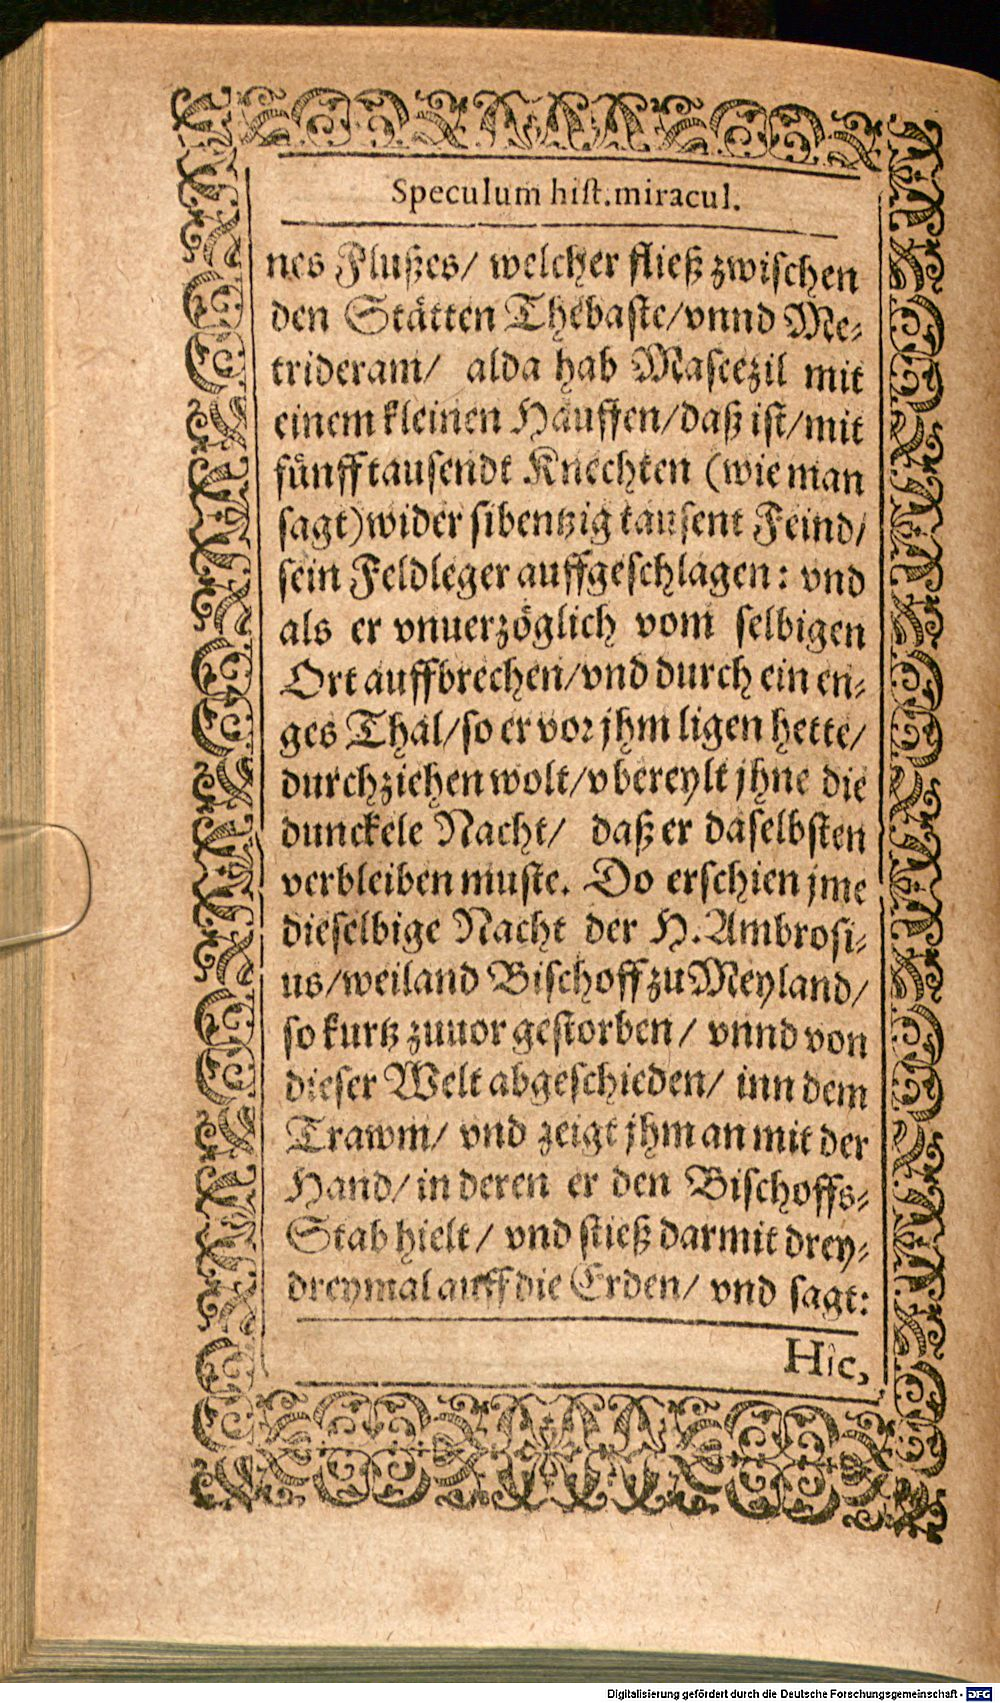 Speculum hist. miracul.
nes Flußes/ welcher fließ zwischen
den Stätten Thebaste/ vnnd Me-
trideram/ alda hab Mascezil mit
einem kleinen Hauffen/ daß ist/ mit
fünfftausendt Knechten (wie man
sagt) wider sibentzig tausent Feind/
sein Feldleger auffgeschlagen: vnd
als er vnuerzöglich vom selbigen
Ort auffbrechen/ vnd durch ein en-
ges Thal/ so er vor jhm ligen hette/
durchziehen wolt/ vbereylt jhne die
dunckele Nacht/ daß er daselbsten
verbleiben muste. Do erschien jme
dieselbige Nacht der H. Ambrosi-
us/ weiland Bischoff zu Meyland/
so kurtz zuuor gestorben/ vnnd von
dieser Welt abgeschieden/ inn dem
Trawm/ vnd zeigt jhm an mit der
Hand/ in deren er den Bischoffs-
Stab hielt/ vnd stieß darmit drey-
dreymal auff die Erden/ vnd sagt:
Hic,
Digitalisierung gefördert durch die Deutsche Forschungsgemeinschaft - DFG